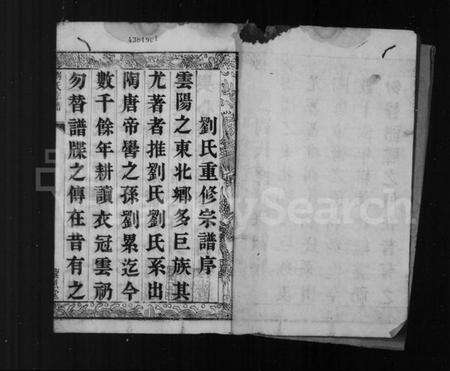 4381961
劉氏重修宗譜序
雲陽之東北鄉多巨族其
尤著者推劉氏劉氏系出
陶唐帝嚳之孫劉累迄今
數千餘年耕讀衣冠雲礽
勿替譜牒之傳在昔有之
MySearch.